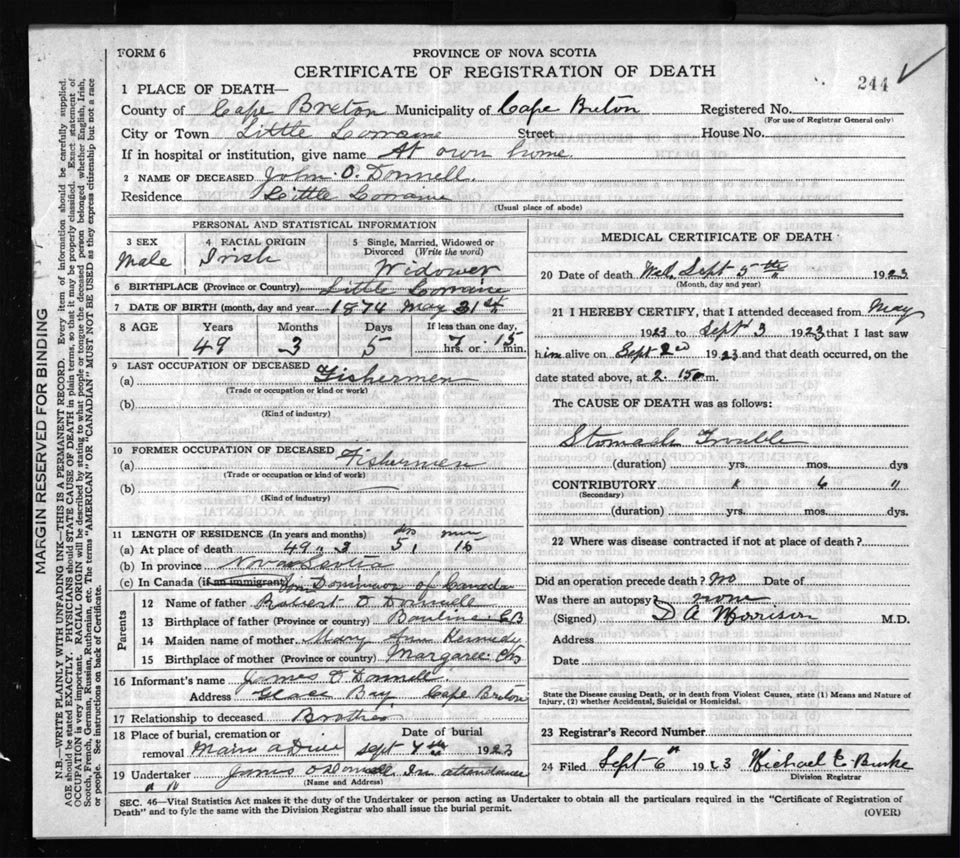 FORM 6
PROVINCE OF NOVA SCOTIA
CERTIFICATE OF REGISTRATION OF DEATH
244
1 PLACE OF DEATH—
County of Cape Breton Municipality of Cape Breton Registered No.
(For use of Registrar General only)
City or Town Little Lorraine Street House No.
If in hospital or institution, give name At own home.
2 NAME OF DECEASED John O. Donnell.
Residence Little Lorraine
(Usual place of abode)
PERSONAL AND STATISTICAL INFORMATION
3 SEX 4 RACIAL ORIGIN 5 Single, Married, Widowed or Divorced (Write the word)
Male Irish Widower
6 BIRTHPLACE (Province or Country) Little Lorraine
7 DATE OF BIRTH (month, day and year) 1874 May 31st
8 AGE Years Months Days If less than one day,
49 3 5 7 hrs. or 15 min.
9 LAST OCCUPATION OF DECEASED
(a) Fishermen
(Trade or occupation or kind or work)
(b)
(Kind of industry)
10 FORMER OCCUPATION OF DECEASED
(a) Fishermen
(Trade or occupation or kind of work)
(b)
(Kind of industry)
11 LENGTH OF RESIDENCE (In years and months)
(a) At place of death 49 " 3 5, 15
(b) In province Nova Scotia
(c) In Canada (if an immigrant) Dominion of Canada
Parents
12 Name of father Robert O Donnell
13 Birthplace of father (Province or country) Bauline CB
14 Maiden name of mother Mary Ann Kennedy
15 Birthplace of mother (Province or country) Margaree
16 Informant's name James O Donnell.
Address Glace Bay Cape Breton
17 Relationship to deceased Brother
18 Place of burial, cremation or removal Main a Dieu Date of burial Sept 7th 1923
19 Undertaker James O Donnell In attendance
(Name and Address)
MEDICAL CERTIFICATE OF DEATH
20 Date of death Wed, Sept 5th 1923
(Month, day and year)
21 I HEREBY CERTIFY, that I attended deceased from May
1923 to Sept 3 1923 that I last saw
him alive on Sept 2nd 1923 and that death occurred, on the
date stated above, at 2. 15 m.
The CAUSE OF DEATH was as follows:
Stomach Trouble
(duration) yrs. mos. dys
CONTRIBUTORY 6 11
(Secondary)
(duration) yrs. mos. dys.
22 Where was disease contracted if not at place of death?
Did an operation precede death? No Date of
Was there an autopsy? none
(Signed) D A Morrison M.D.
Address
Date
State the Disease causing Death, or in death from Violent Causes, state (1) Means and Nature of
Injury, (2) whether Accidental, Suicidal or Homicidal.
23 Registrar's Record Number
24 Filed Sept 6th 1923 Michael C. Burke
Division Registrar
SEC. 46—Vital Statistics Act makes it the duty of the Undertaker or person acting as Undertaker to obtain all the particulars required in the "Certificate of Registration of
Death" and to fyle the same with the Division Registrar who shall issue the burial permit.
(OVER)
MARGIN RESERVED FOR BINDING
N.B.—WRITE PLAINLY WITH UNFADING INK—THIS IS A PERMANENT RECORD. Every item of information should be carefully supplied.
AGE should be stated EXACTLY. PHYSICIANS should STATE CAUSE OF DEATH in plain terms, so that it may be properly classified. Exact statement of
OCCUPATION is very important. RACIAL ORIGIN will be described by stating to what people or tongue the deceased person belonged whether English, Irish,
Scotch, French, German, Russian, Ruthenian, etc. The terms "AMERICAN" OR "CANADIAN" MUST NOT BE USED as they express citizenship but not a race
or people. See instructions on back of Certificate.